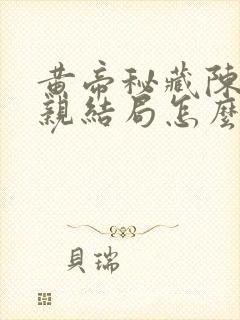 黄帝秘藏陳
親結局怎麼
貝瑞